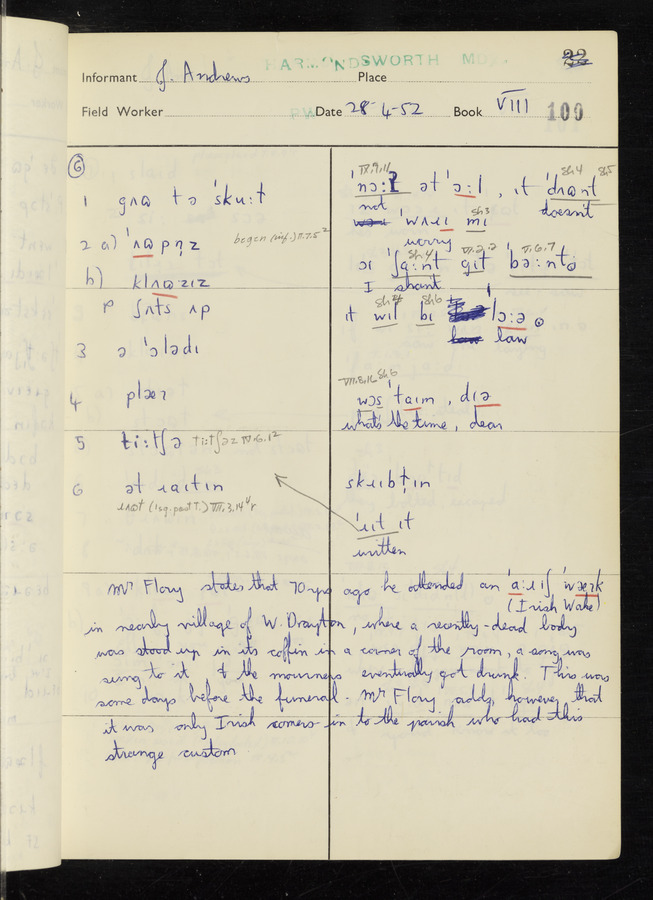 HARMONDSWORTH MDX.
22
Informant J. Andrews Place
Field Worker Date 28-4-52 Book VIII 100
PW
6
1 gʌɷ tə ˈskuːt
2 a) ˈʌɷpn̩z
b) klʌɷzɪz
p ʃʌts ʌp
3 ə ˈɔlədɪ
4
5 tiːtʃə tiːtʃəz VI.6.12
6 ət ɹaɪtɪn
IX.9.11
ˈnɔːʔ ət ˈɔːl, ɪt ˈdʌɷnt
Sh4 Sh5
not doesn't
ˈwʌɹɪ mɪ
Sh3
worry
ɔɪ ʃɑːnt gɪt ˈbɔːntə
Sh4
V.6.7
I shan't
ɪt wɪl bɪ ˈlɔːə
Sh6
law law
VII.8.16 Sh6
wɔs ˈtaɪm, dɪə
what's the time, dear
skɹɪbtɪn
ˈɹɪt ɪt
written
Mr Flory states that 70 yrs ago he attended an ˈaːɹɪʃ ˈwæɪk
(Irish Wake)
in nearby village of W. Drayton, where a recently-dead body
was stood up in its coffin in a corner of the room, a song was
sung to it & the mourners eventually got drunk. This was
some days before the funeral. Mr Flory adds, however, that
it was only Irish comers-in to the parish who had this
strange custom